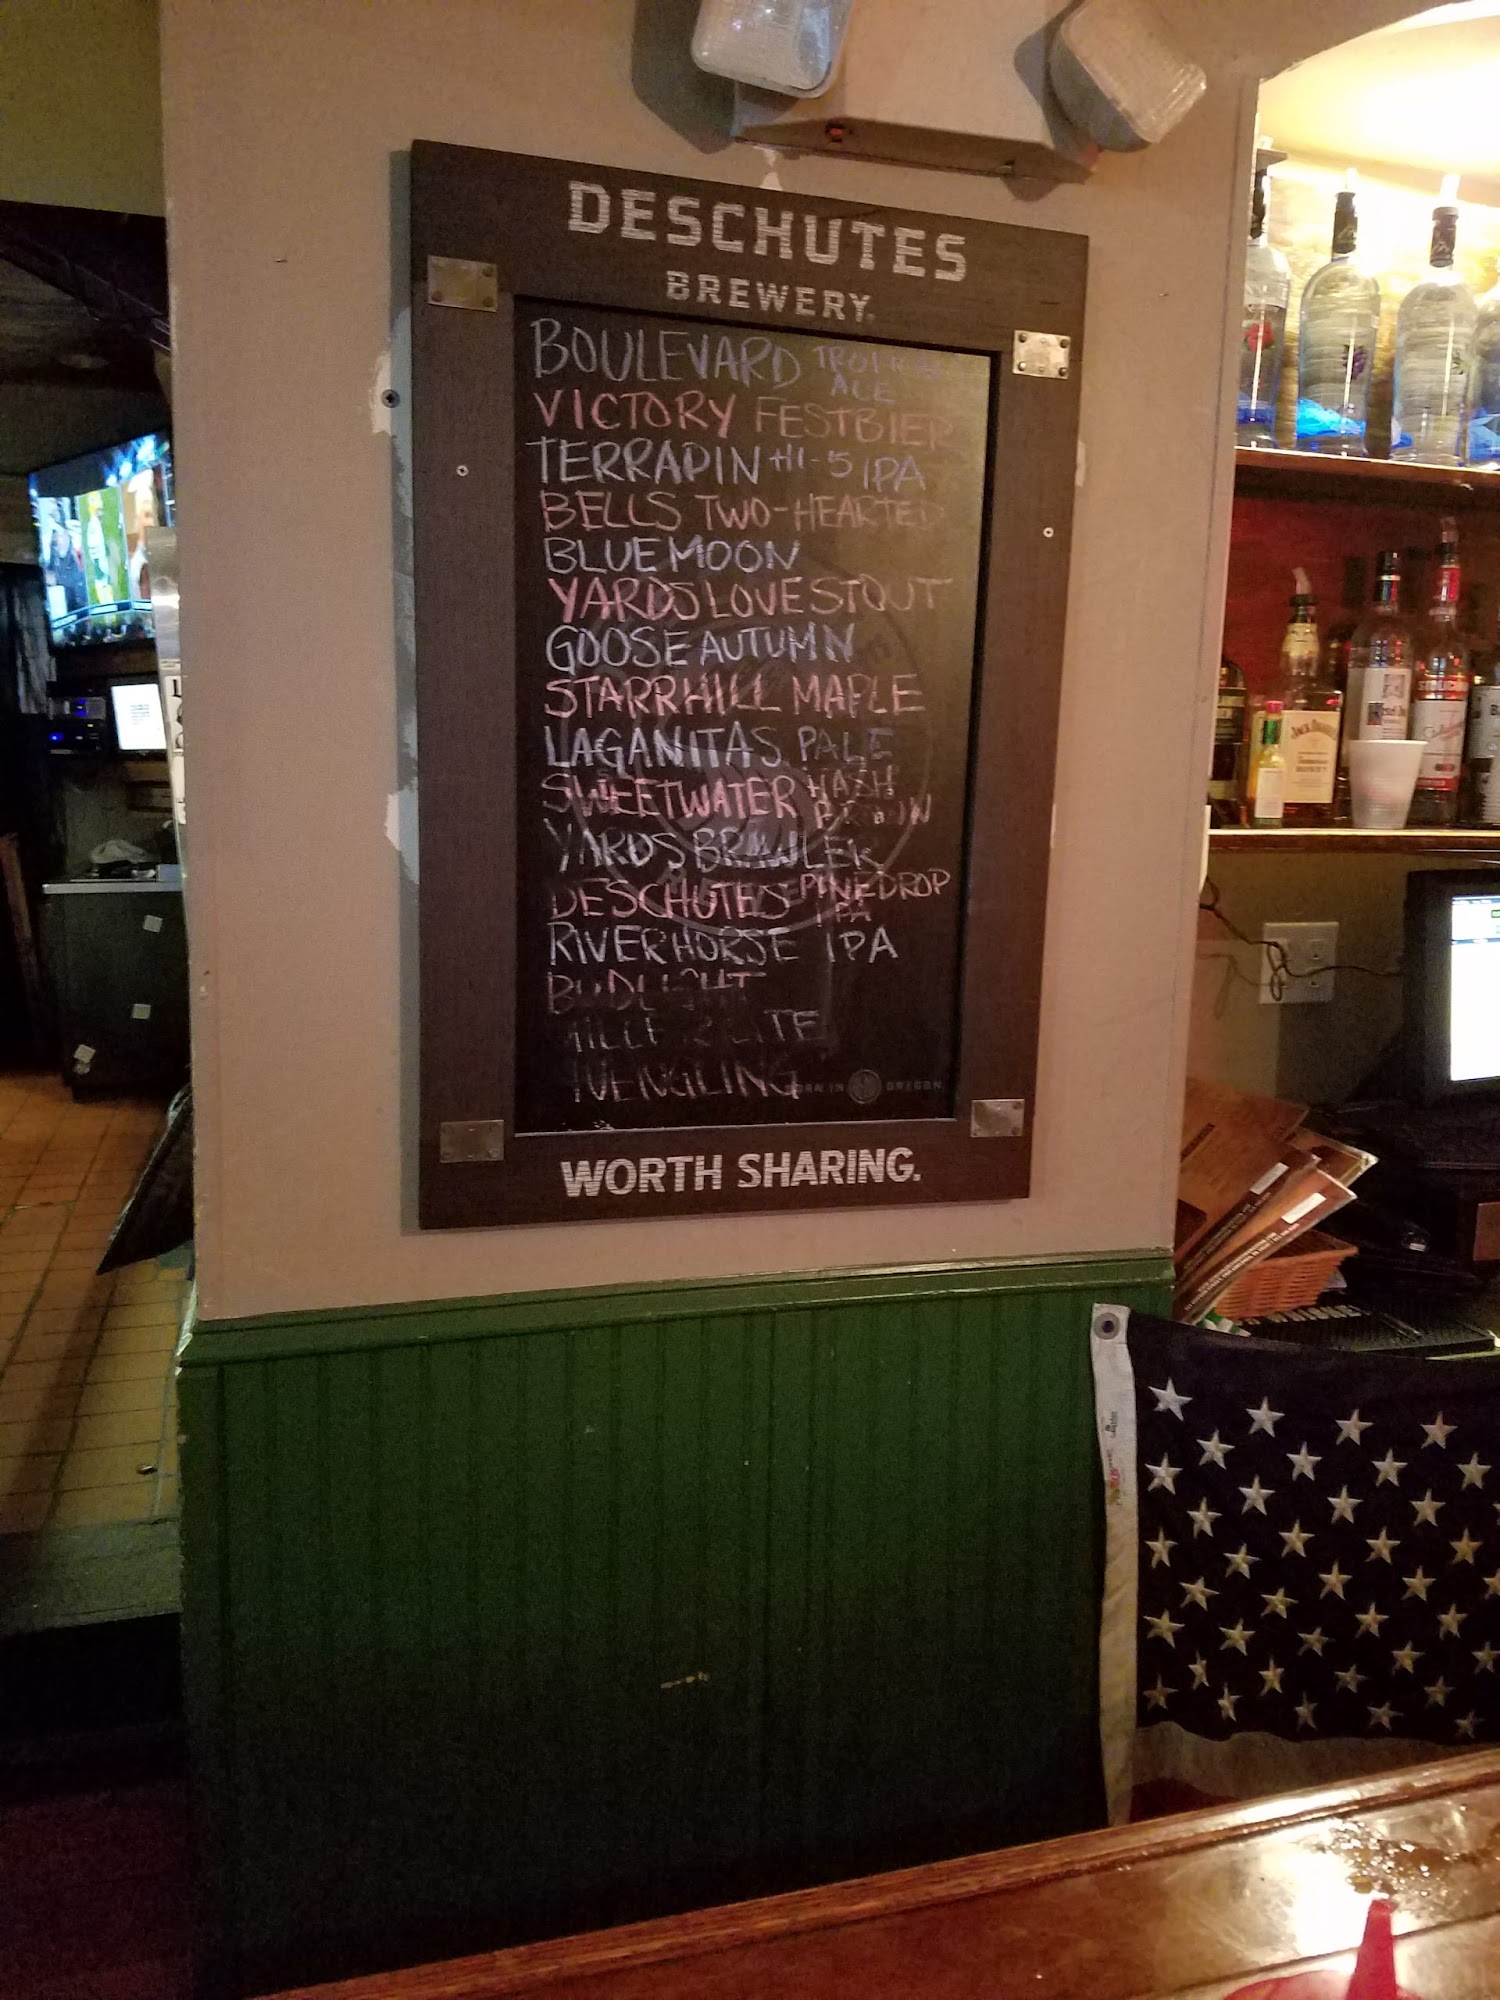 DESCHUTES
BREWERY
BOULEVARD TROPICAL
ALE
VICTORY FESTBIER
TERRAPIN HI-5 IPA
BELLS TWO-HEARTED
BLUE MOON
YARDS LOVE STOUT
GOOSE AUTUMN
STARRHILL MAPLE
LAGANITAS PALE
SWEETWATER HASH
BROWN
YARDS BRAWLER
DESCHUTES PINEDROP
IPA
RIVERHORSE IPA
BUDLIGHT
MILLER LITE
YUENGLING
BORN IN OREGON
WORTH SHARING.
JACK DANIEL'S